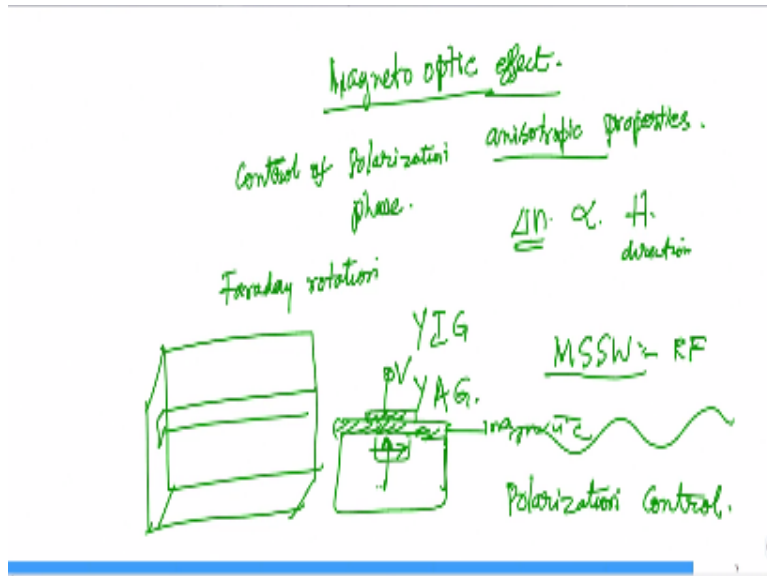 Magneto optic effect.
Control of Polarization
phase.
anisotropic properties.
Δn. α. H.
direction
Faraday rotation
YIG
V
YAG.
MSSW - RF
magnetic
Polarization Control.